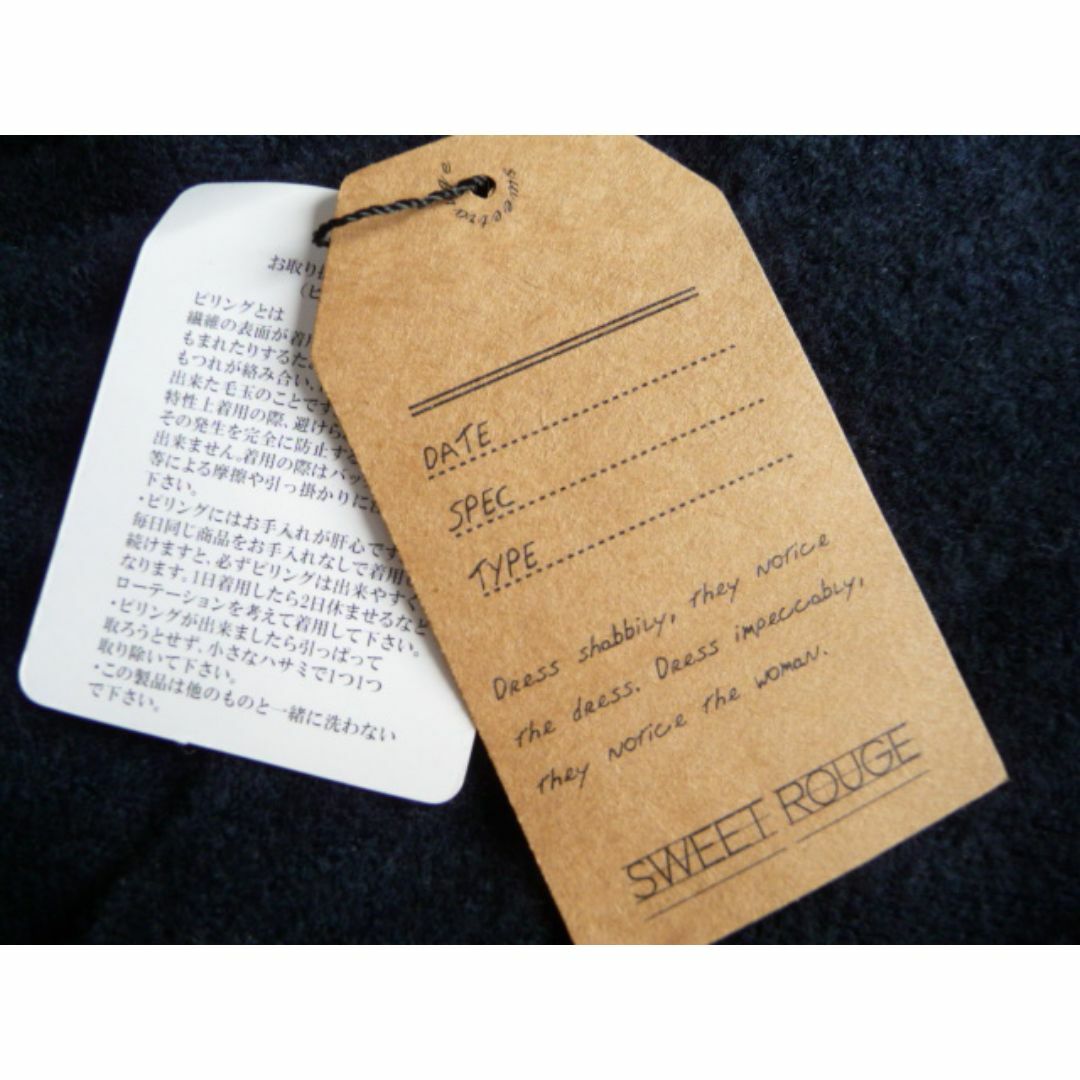 お取り
ピリングとは
繊維の表面が着用
もまれたりするた
もつれが絡み合い、
出来た毛玉のことです
特性上着用の際、避けら
その発生を完全に防止す
出来ません。着用の際はバッ
等による摩擦や引っ掛かりに
下さい。
・ピリングにはお手入れが肝心です
毎日同じ商品をお手入れなしで着用
続けますと、必ずピリングは出来やすく
なります。1日着用したら2日休ませるなど
ローテーションを考えて着用して下さい。
・ピリングが出来ましたら引っぱって
取ろうとせず、小さなハサミで1つ1つ
取り除いて下さい。
・この製品は他のものと一緒に洗わない
で下さい。
DATE
SPEC
TYPE
Dress shabbily, they notice
the dress. Dress impeccably,
they notice the woman.
SWEET ROUGE